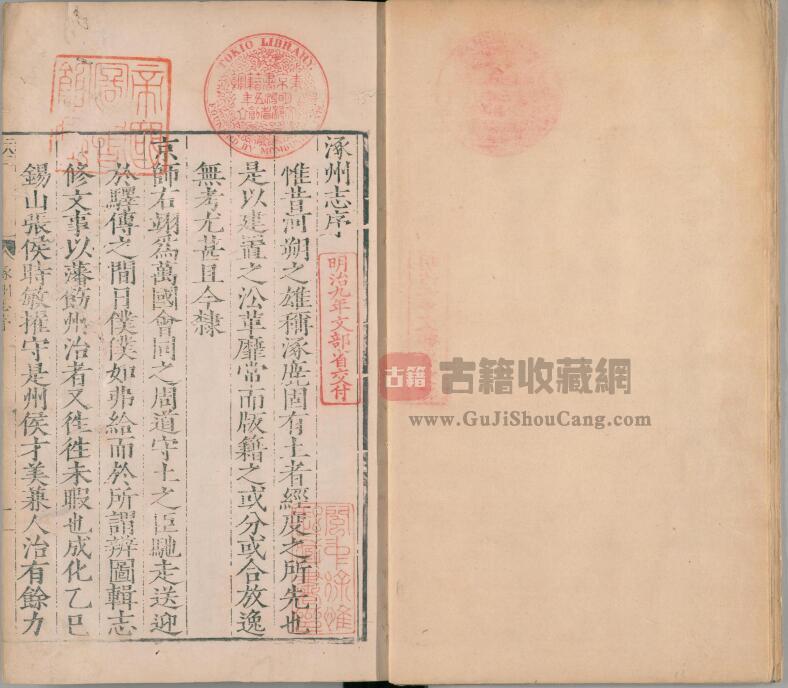 涿州志序
惟昔河朔之雄稱涿鹿固有土者經度之所先也
是以建置之沿革靡常而版籍之或分或合放逸
無考尤甚且今隸
京師右翊爲萬國會同之周道守土之臣馳走送迎
於驛傳之間日僕僕如弗給而於所謂辨圖輯志
修文事以藩飭州治者又徃徃未暇也成化乙巳
錫山張侯時敏擢守是州侯才美兼人治有餘力
明治九年文部省交付
TOKIO LIBRARY
古籍
古籍收藏網
www.GuJiShouCang.com